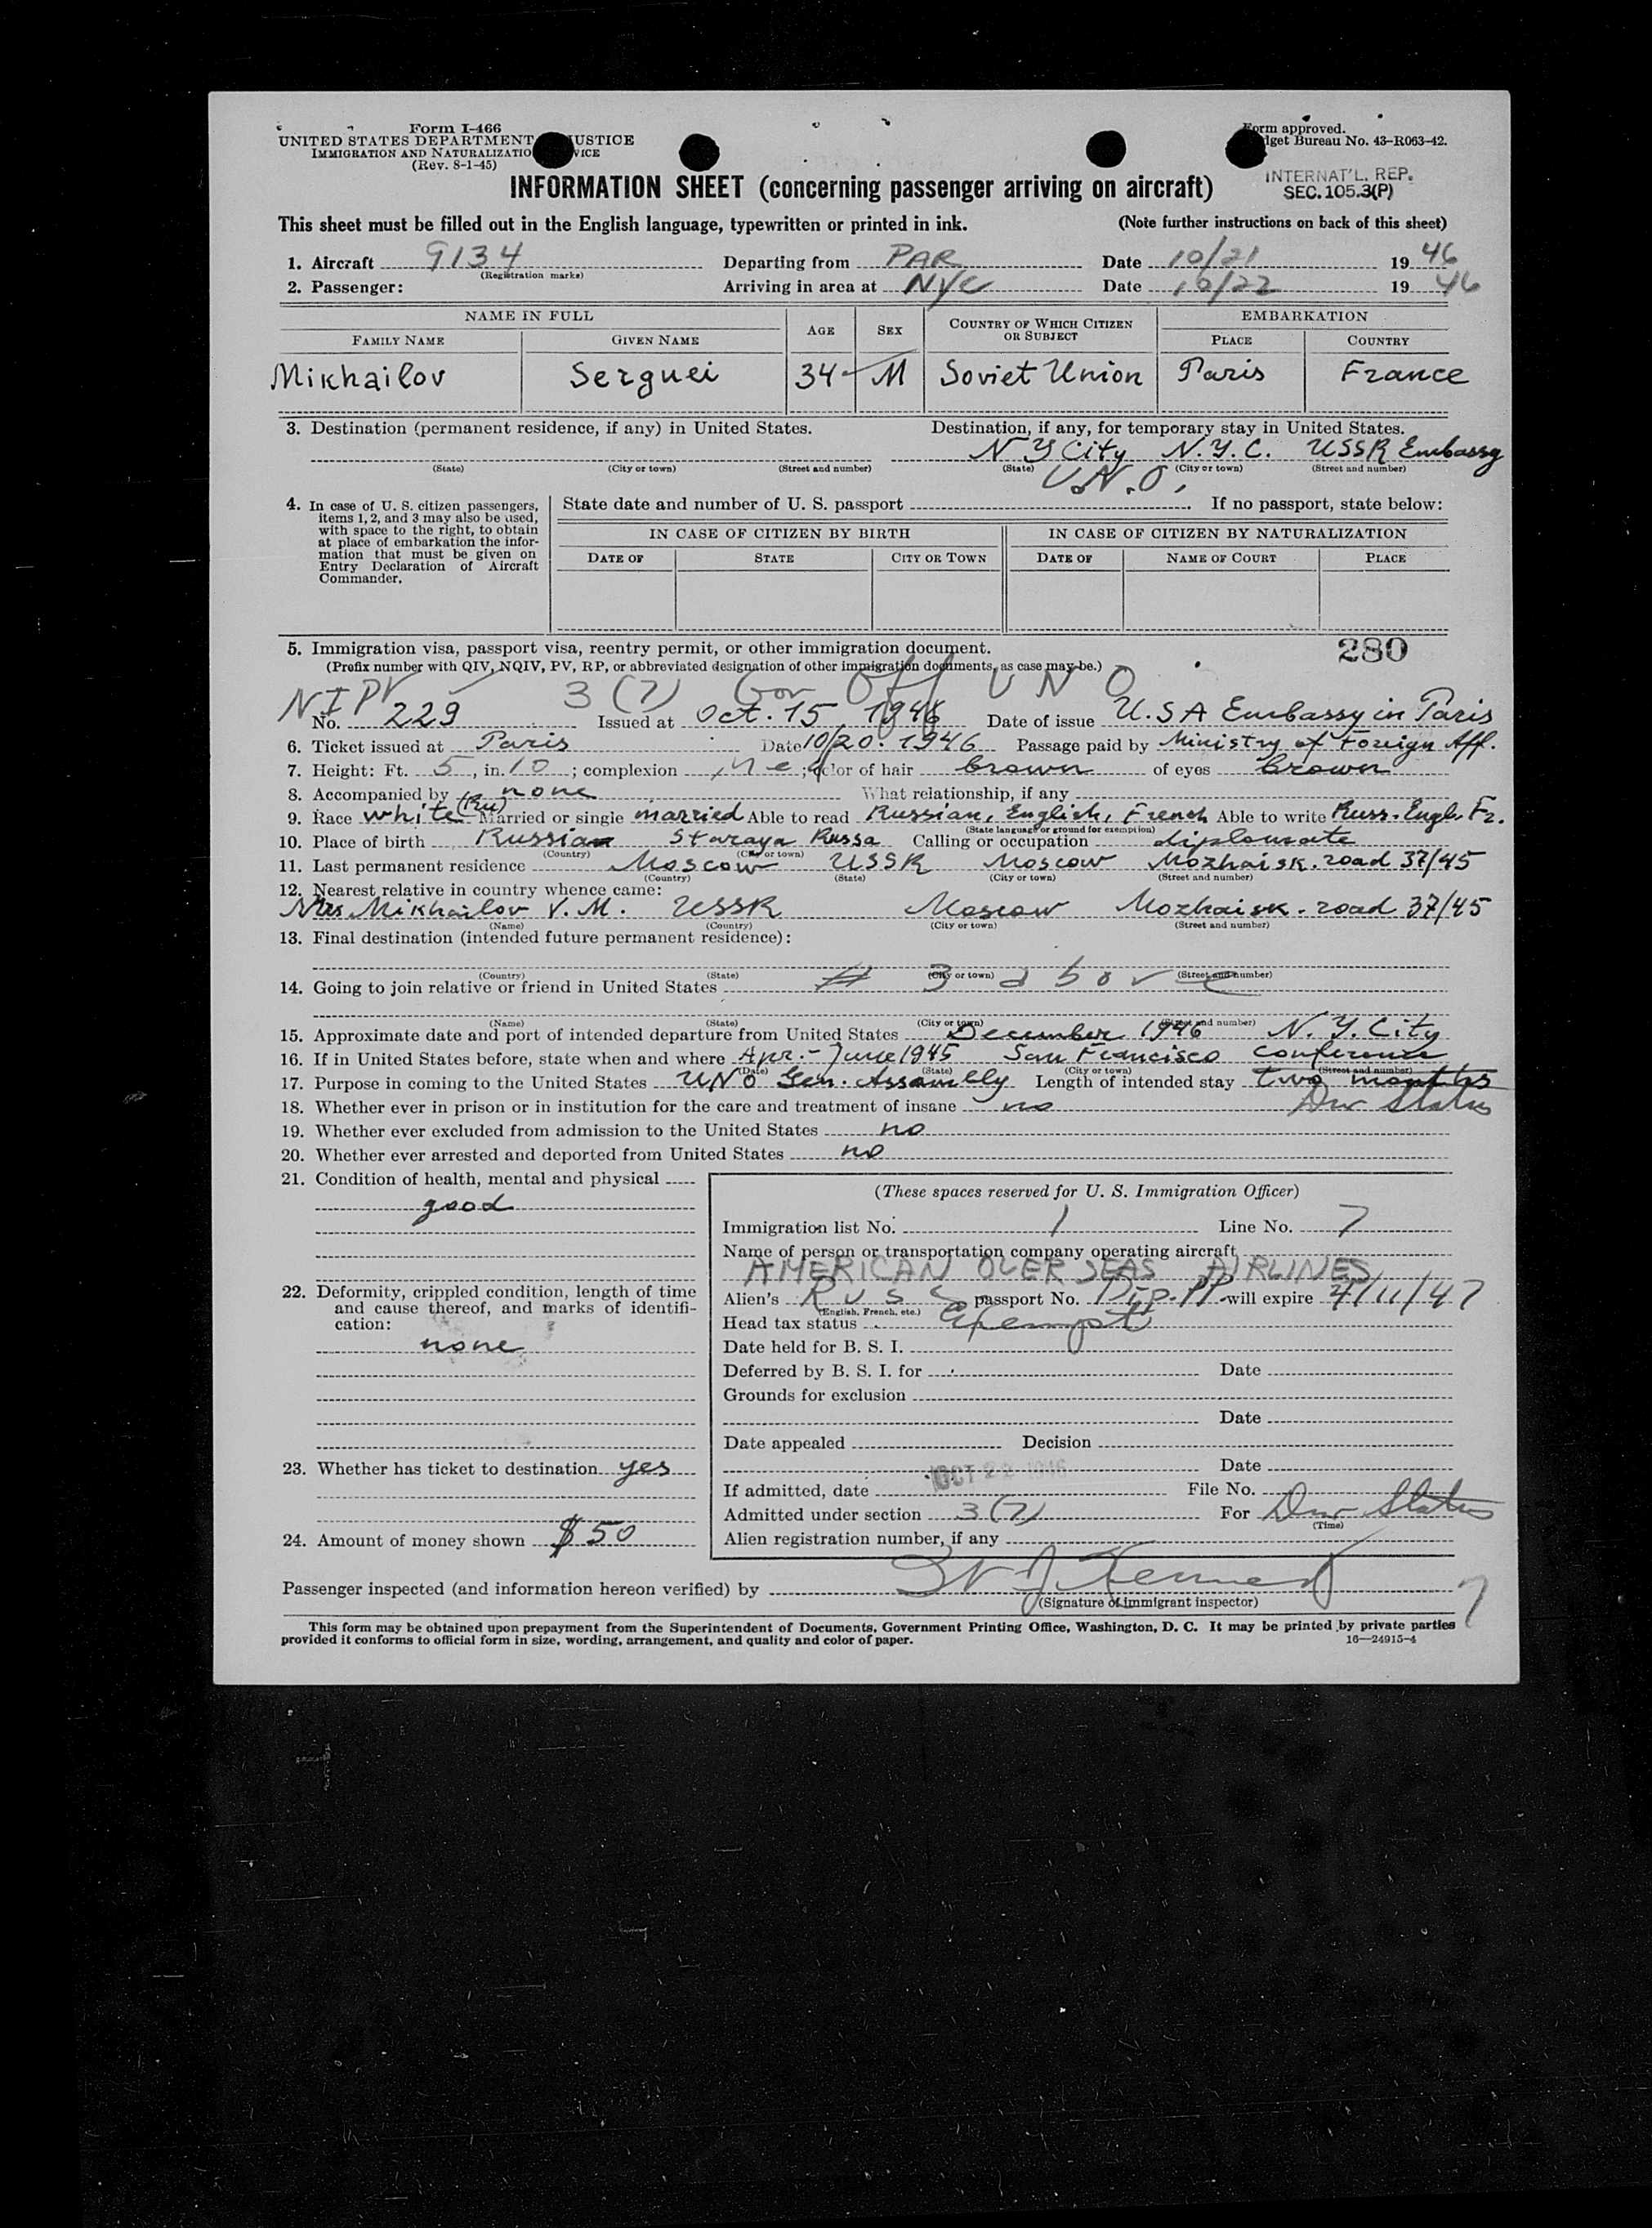 Form I-466
UNITED STATES DEPARTMENT JUSTICE
IMMIGRATION AND NATURALIZATIO VICE
(Rev. 8-1-45)
Form approved.
dget Bureau No. 43-R063-42.
INTERNAT'L. REP.
SEC. 105.3(P)
INFORMATION SHEET (concerning passenger arriving on aircraft)
This sheet must be filled out in the English language, typewritten or printed in ink. (Note further instructions on back of this sheet)
1. Aircraft 9134 Departing from PAR Date 10/21 1946
(Registration marks)
2. Passenger: Arriving in area at NYC Date 10/22 1946
NAME IN FULL AGE SEX COUNTRY OF WHICH CITIZEN OR SUBJECT EMBARKATION
FAMILY NAME GIVEN NAME PLACE COUNTRY
Mikhailov Serguei 34 M Soviet Union Paris France
3. Destination (permanent residence, if any) in United States. Destination, if any, for temporary stay in United States.
N Y City N.Y.C. USSR Embassy
(State) (City or town) (Street and number) (State) (City or town) (Street and number)
U.N.O.
4. In case of U. S. citizen passengers, items 1, 2, and 3 may also be used, with space to the right, to obtain at place of embarkation the information that must be given on Entry Declaration of Aircraft Commander.
State date and number of U. S. passport . If no passport, state below:
IN CASE OF CITIZEN BY BIRTH IN CASE OF CITIZEN BY NATURALIZATION
DATE OF STATE CITY OR TOWN DATE OF NAME OF COURT PLACE
5. Immigration visa, passport visa, reentry permit, or other immigration document. 280
(Prefix number with QIV, NQIV, PV, RP, or abbreviated designation of other immigration documents, as case may be.)
NIPV 3(7) Gov Off UNO
No. 229 Issued at Oct. 15, 1946 Date of issue U.S A Embassy in Paris
6. Ticket issued at Paris Date 10/20. 1946 Passage paid by Ministry of Foreign Aff.
7. Height: Ft. 5, in. 10; complexion Med; color of hair brown of eyes brown
8. Accompanied by none What relationship, if any
9. Race white (Ru) Married or single married Able to read Russian, English, French Able to write Russ. Engl. Fr.
(State language or ground for exemption)
10. Place of birth Russian Staraya Russa Calling or occupation diplomate
(Country) (City or town)
11. Last permanent residence Moscow USSR Moscow Mozhaisk. road 37/45
(Country) (State) (City or town) (Street and number)
12. Nearest relative in country whence came:
Mrs Mikhailov V. M. USSR Moscow Mozhaisk. road 37/45
(Name) (Country) (City or town) (Street and number)
13. Final destination (intended future permanent residence):
(Country) (State) (City or town) (Street and number)
14. Going to join relative or friend in United States # 3 above
(Name) (State) (City or town) (Street and number)
15. Approximate date and port of intended departure from United States December 1946 N.Y. City
16. If in United States before, state when and where Apr. - June 1945 San Francisco Conference
(Date) (State) (City or town) (Street and number)
17. Purpose in coming to the United States UNO Gen. Assambly Length of intended stay two months
18. Whether ever in prison or in institution for the care and treatment of insane no Dur Status
19. Whether ever excluded from admission to the United States no
20. Whether ever arrested and deported from United States no
21. Condition of health, mental and physical
good
22. Deformity, crippled condition, length of time and cause thereof, and marks of identification:
none
23. Whether has ticket to destination yes
24. Amount of money shown $50
(These spaces reserved for U. S. Immigration Officer)
Immigration list No. 1 Line No. 7
Name of person or transportation company operating aircraft
AMERICAN OVERSEAS AIRLINES
Alien's Russ passport No. Dip. PP will expire 4/11/47
(English, French, etc.)
Head tax status Exempt
Date held for B. S. I.
Deferred by B. S. I. for Date
Grounds for exclusion
Date
Date appealed Decision
OCT 22 1946 Date
If admitted, date File No.
Admitted under section 3(7) For Dur Status
(Time)
Alien registration number, if any
Passenger inspected (and information hereon verified) by
(Signature of immigrant inspector)
7
This form may be obtained upon prepayment from the Superintendent of Documents, Government Printing Office, Washington, D. C. It may be printed by private parties
provided it conforms to official form in size, wording, arrangement, and quality and color of paper. 16—24915-4